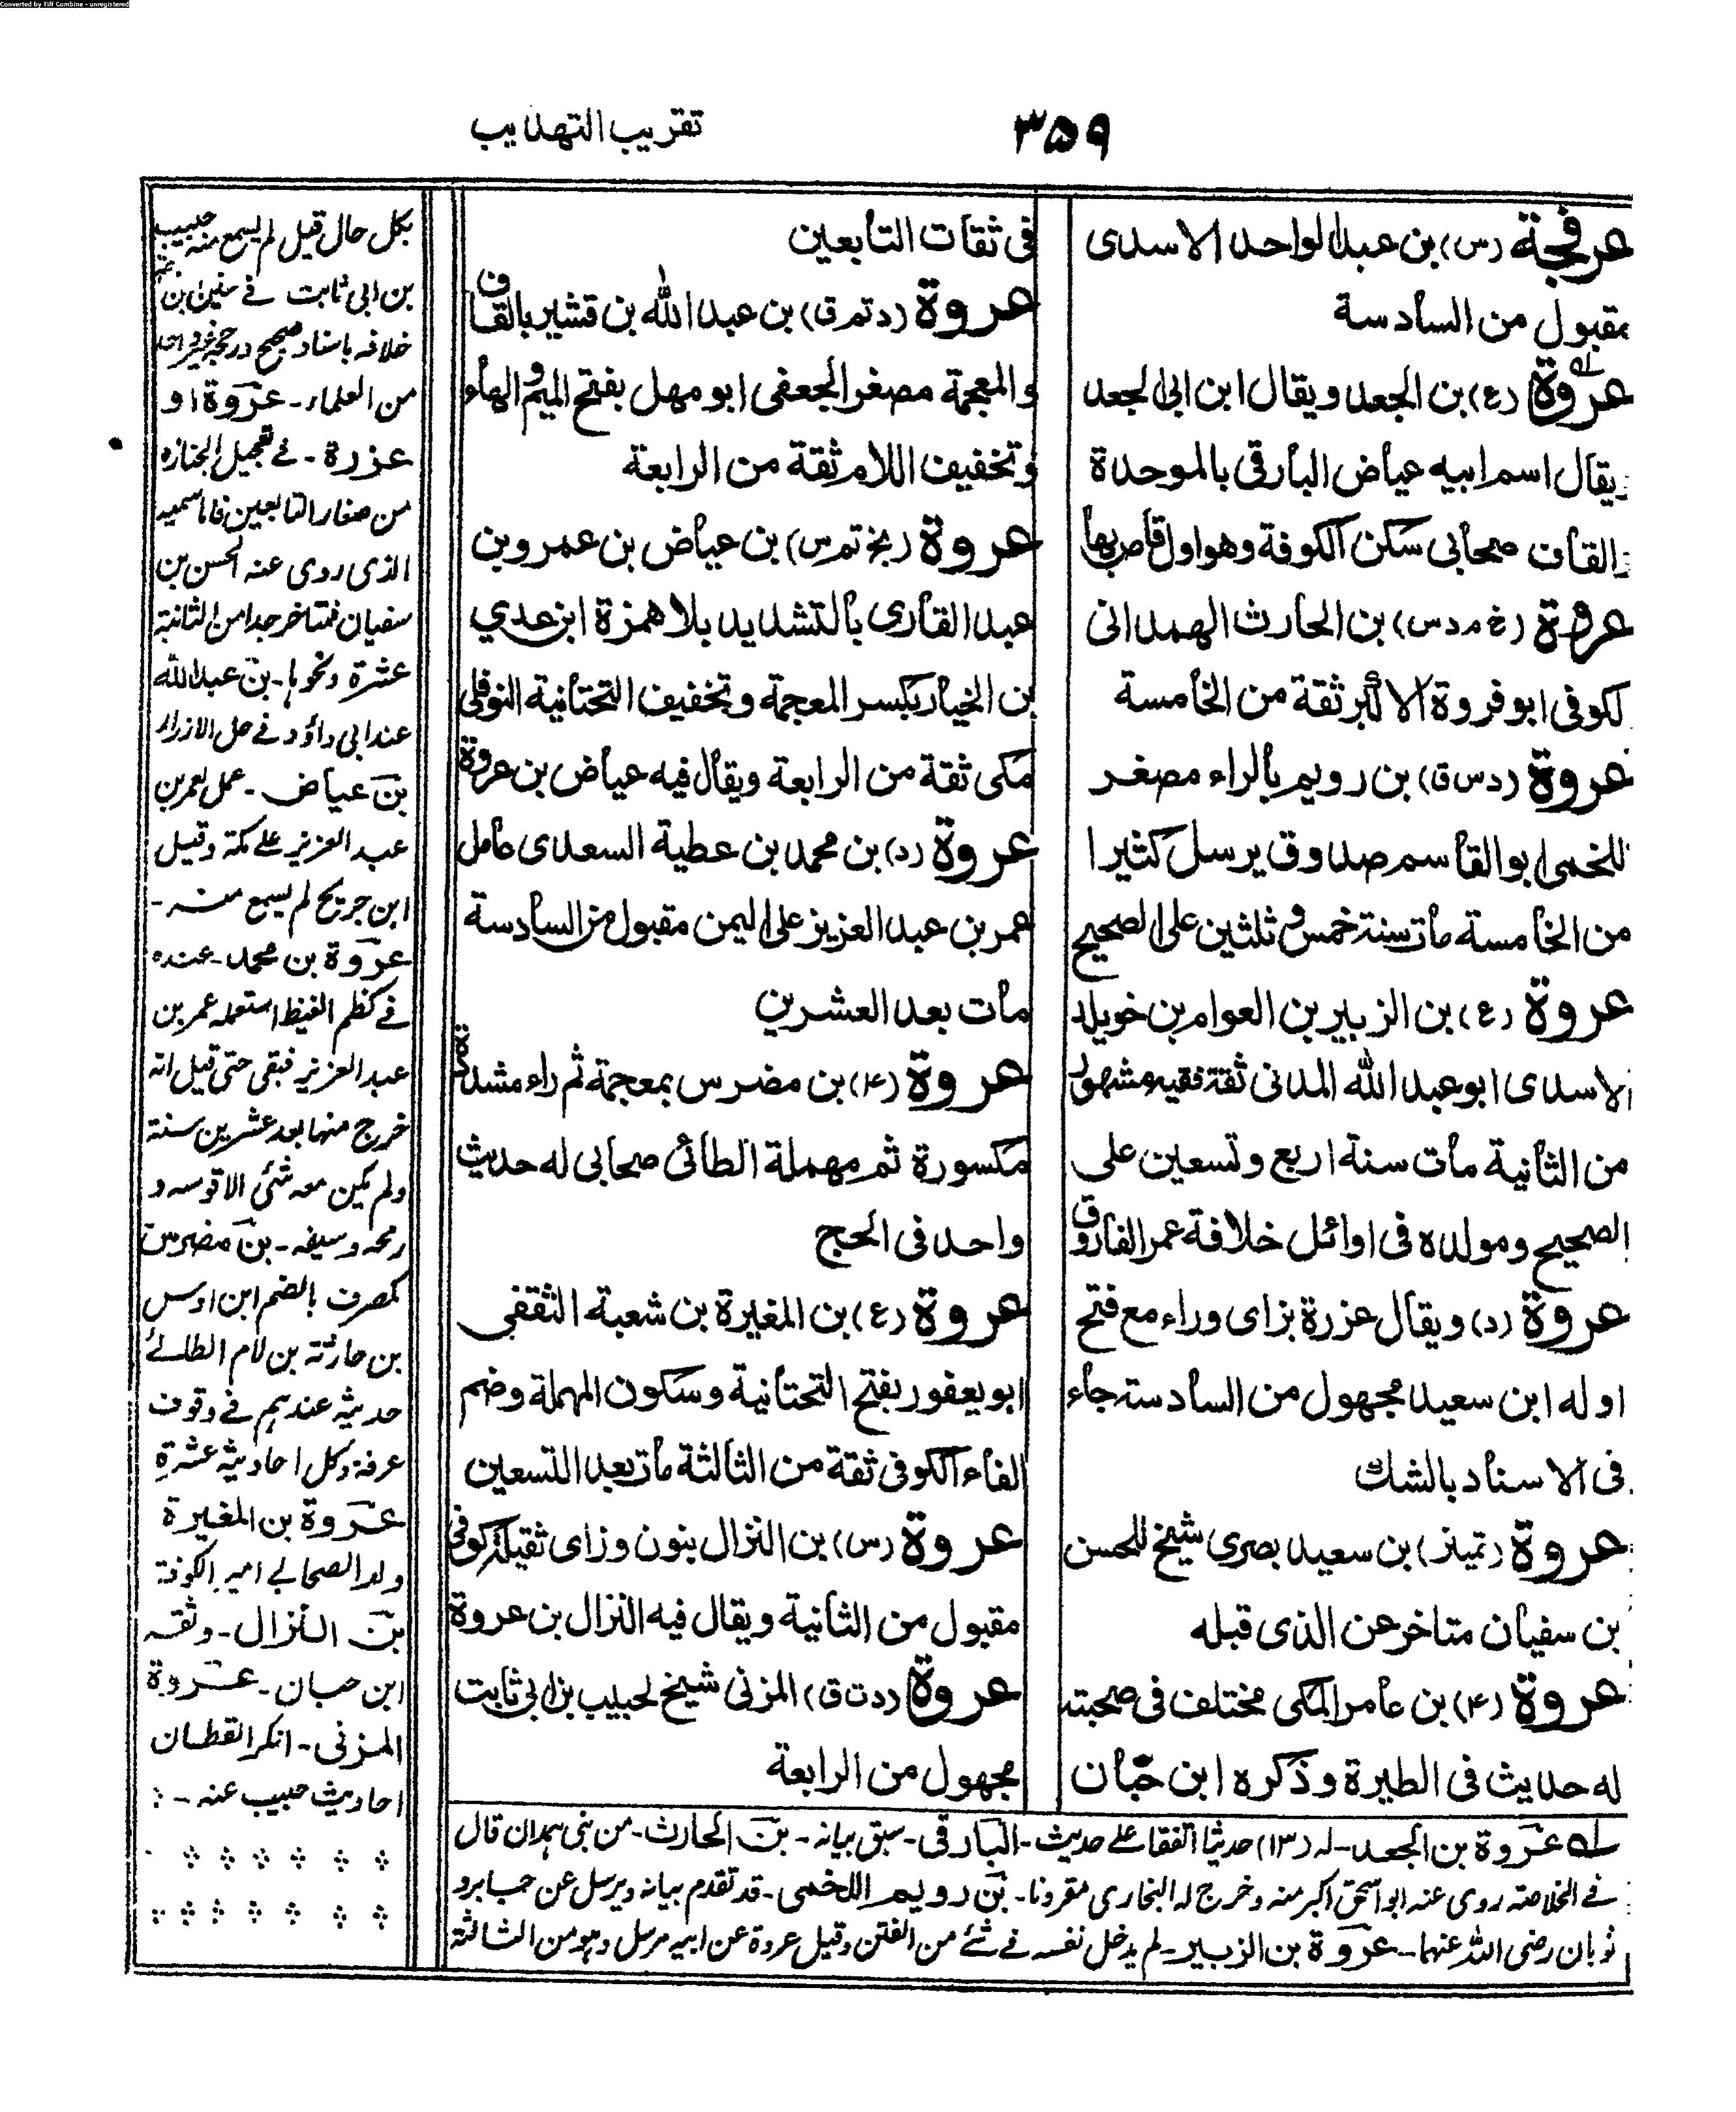 Converted by Tiff Combine - unregistered
۳۵۹
تقريب التهذيب
عرفجة (س) بن عبد الواحد الاسدى
مقبول من السادسة
عروة (ع) بن الجعد ويقال ابن ابى الجعد
يقال اسم ابيه عياض البارقى بالموحدة
والقاف صحابى سكن الكوفة وهو اول قاض بها
عروة (خ م د س) بن الحارث الهمدانى
لكوفى ابو فروة الاكبر ثقة من الخامسة
عروة (د س ق) بن رويم بالراء مصغر
للخمى ابو القاسم صدوق يرسل كثيرا
من الخامسة مات سنة خمس و ثلثين على الصحيح
عروة (ع) بن الزبير بن العوام بن خويلد
الاسدى ابو عبد الله المدنى ثقة فقيه مشهور
من الثانية مات سنة اربع وتسعين على
الصحيح ومولده فى اوائل خلافة عمر الفاروق
عروة (د) ويقال عزرة بزاى وراء مع فتح
اوله ابن سعيد مجهول من السادسة جاء
فى الاسناد بالشك
عروة (تميز) بن سعيد بصرى شيخ للحسن
بن سفيان متاخر عن الذى قبله
عروة (۴) بن عامر المكى مختلف فى صحبته
له حديث فى الطيرة وذكره ابن حبان
فى ثقات التابعين
عروة (د تم ق) بن عبد الله بن قشير بالقاف
والمعجمة مصغر الجعفى ابو مهل بفتح الميم و الهاء
وتخفيف اللام ثقة من الرابعة
عروة (بخ تم س) بن عياض بن عمرو بن
عبد القارى بالتشديد بلا همزة ابن عدي
بن الخيار بكسر المعجمة وتخفيف التحتانية النوفلى
مكى ثقة من الرابعة ويقال فيه عياض بن عروة
عروة (د) بن محمد بن عطية السعدى عامل
عمر بن عبد العزيز على اليمن مقبول من السادسة
مات بعد العشرين
عروة (۴) بن مضرس بمعجمة ثم راء مشددة
مكسورة ثم مهملة الطائى صحابى له حديث
واحد فى الحج
عروة (ع) بن المغيرة بن شعبة الثقفى
ابو يعفور بفتح التحتانية وسكون المهملة وضم
الفاء الكوفى ثقة من الثالثة مات بعد التسعين
عروة (س) بن النزال بنون وزاى ثقيلة كوفى
مقبول من الثانية ويقال فيه النزال بن عروة
عروة (د ت ق) المزنى شيخ لحبيب بن ابى ثابت
مجهول من الرابعة
بكل حال قيل لم يسمع منه حبيب
بن ابى ثابت فے
خلافه باسناد صحيح
من العلماء ـ عروة او
عزرة ـ فے تعجيل الجنازه
من صغار التابعين فاما سميه
الذى روى عنه الحسن بن
سفيان فمتاخر جدا من الثانية
عشرة ونحوها ـ بن عبد الله
عند ابى داؤد فے حل الازرار
بن عياض ـ عمل لعمر بن
عبد العزيز علے مكة وقيل
ابن جريج لم يسمع منه ـ
عروة بن محمد ـ عنده
فے كظم الغيظ استعمله عمر بن
عبد العزيز فبقى حتى قيل انه
خرج منها بعد عشرين سنة
ولم يكن معه شئ الا قوسه و
رمحه وسيفه ـ بن مضرس
كمصرف بالضم ابن اوس
بن حارثة بن لام الطائے
حديثه عندهم فے وقوف
عرفة وكل احاديثه عشرة
عروة بن المغيرة
ولد الصحابے امير الكوفة
بن النزال ـ وثقه
ابن حبان ـ عروة
المزنى ـ انكر القطان
احاديث حبيب عنه ـ
له عروة بن الجعد ـ له (۱۳) حديثا اتفقا علے حديث ـ البارقى ـ سبق بيانه ـ بن الحارث ـ من بنى همدان قال
فے الخلاصة روى عنه ابو اسحق اكبر منه وخرج له البخارى مقرونا ـ بن رويم اللخمى ـ قد تقدم بيانه ويرسل عن جابر و
ثوبان رضى الله عنهما ـ عروة بن الزبير ـ لم يدخل نفسه فے شئے من الفتن وقيل عروة عن ابيه مرسل وهو من الثالثة